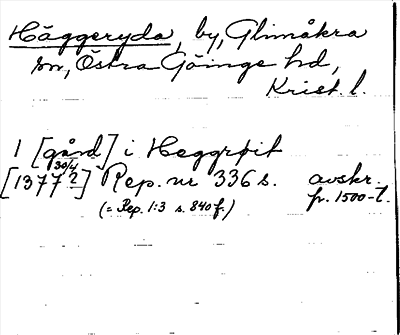 Häggeryda, by, Glimåkra
sn, Östra Göinge hd,
Krist. l.
1 [gård] i Heggrþit
30/4
[1377?] Rep. nr 336 s. avskr.
(= Rep. 1:3 s. 840 f.) fr. 1500-t.